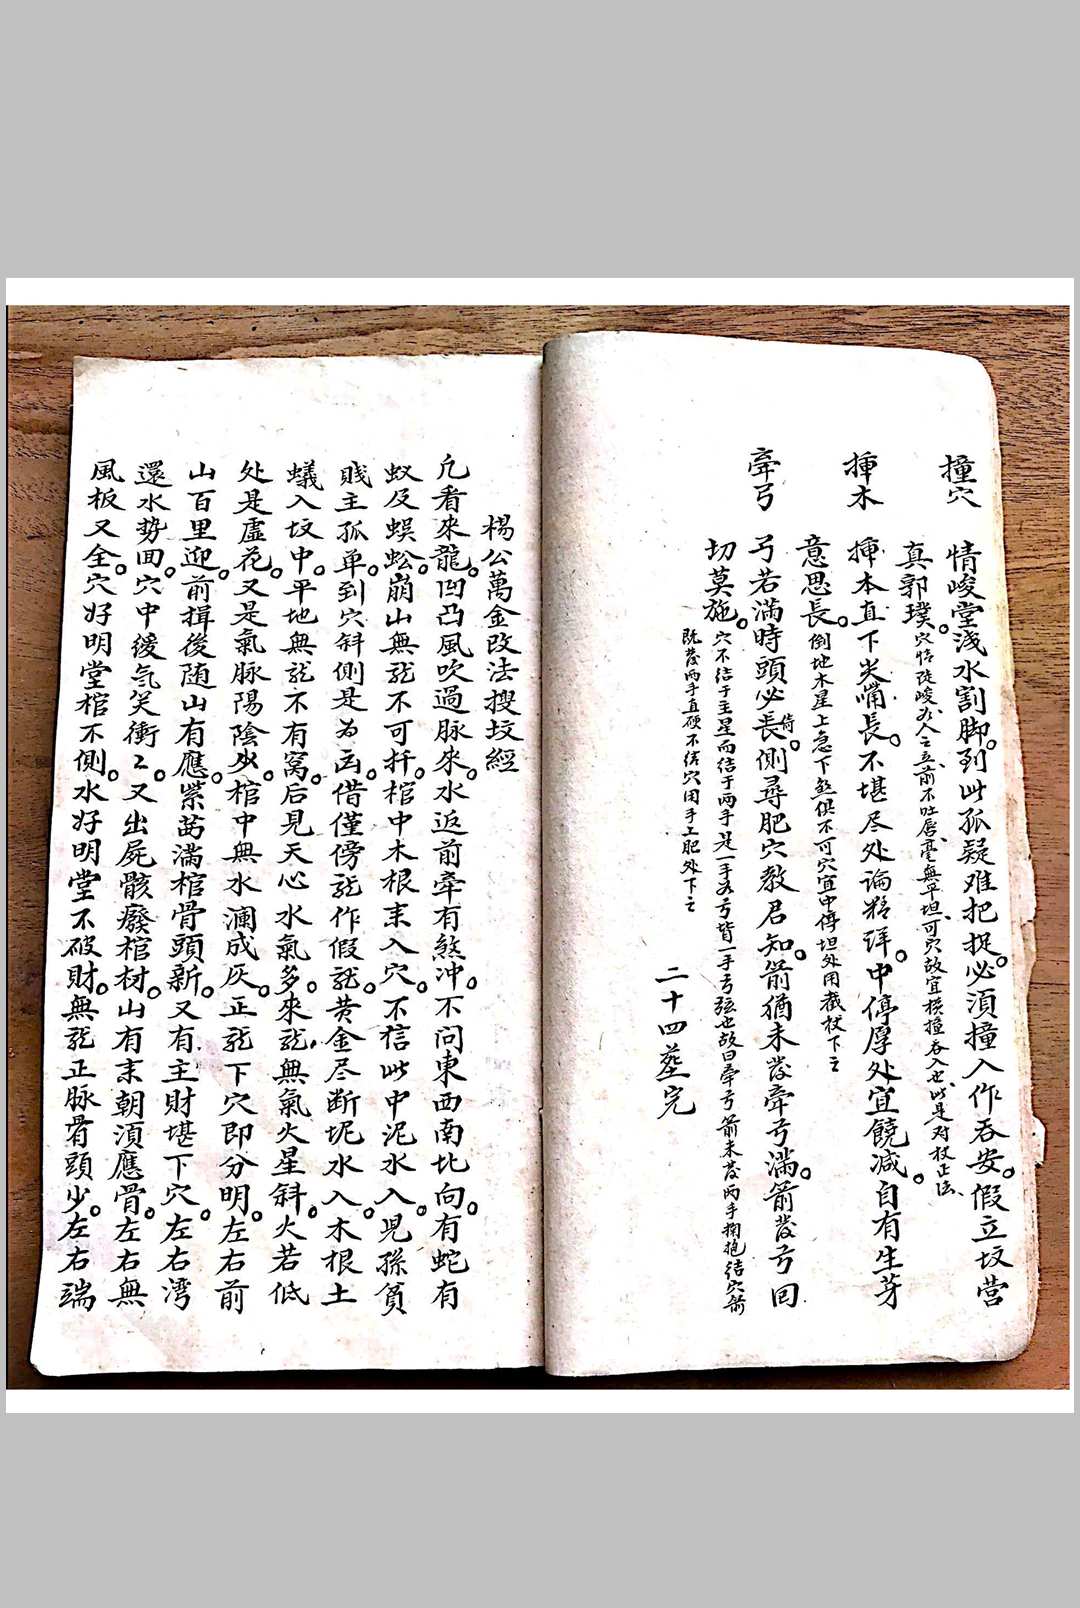 撞穴
情峻堂浅水割脚到此孤疑难把捉必須撞入作吞安假立坟营
真郭璞穴情陡峻如人之立前不吐唇毫無平坦可穴故宜横撞吞入也此是对杖正法
揷木
揷本直下尖嘴長不堪尽处論精詳中停厚处宜饒减自有生芽
意思長倒地木星上急下煞俱不可穴宜中停坦处用截杖下之
牽弓
弓若滿時頭必長倚側尋肥穴教君知箭猶未發牽弓滿箭發弓回
切莫施穴不结于主星而结于两手是一手为弓背一手弓弦也故曰牽弓箭未發两手掬抱结穴箭
既發两手直硬不结穴因手上肥处下之
二十四塟完
楊公萬金改法搜坟經
凢看來龍凹凸風吹過脉來水返前牽有煞冲不问東西南北向有蛇有
蚁及蜈蚣崩山無龍不可扦棺中木根来入穴不信此中泥水入兒孫貧
賎主孤单到穴斜側是为凶借僅傍龍作假龍黄金尽断坭水入木根土
蟻入坟中平地無龍不有窝后見天心水氣多來龍無氣火星斜火若低
处是虛花又是氣脉陽陰少棺中無水瀾成灰正龍下穴即分明左右前
山百里迎前揖後随山有應紫茜满棺骨頭新又有主財堪下穴左右湾
還水势回穴中缓气笑衝乙又出屍骸廢棺材山有来朝須應骨左右無
風板又全穴好明堂棺不侧水好明堂不破財無龍正脉骨頭少左右端